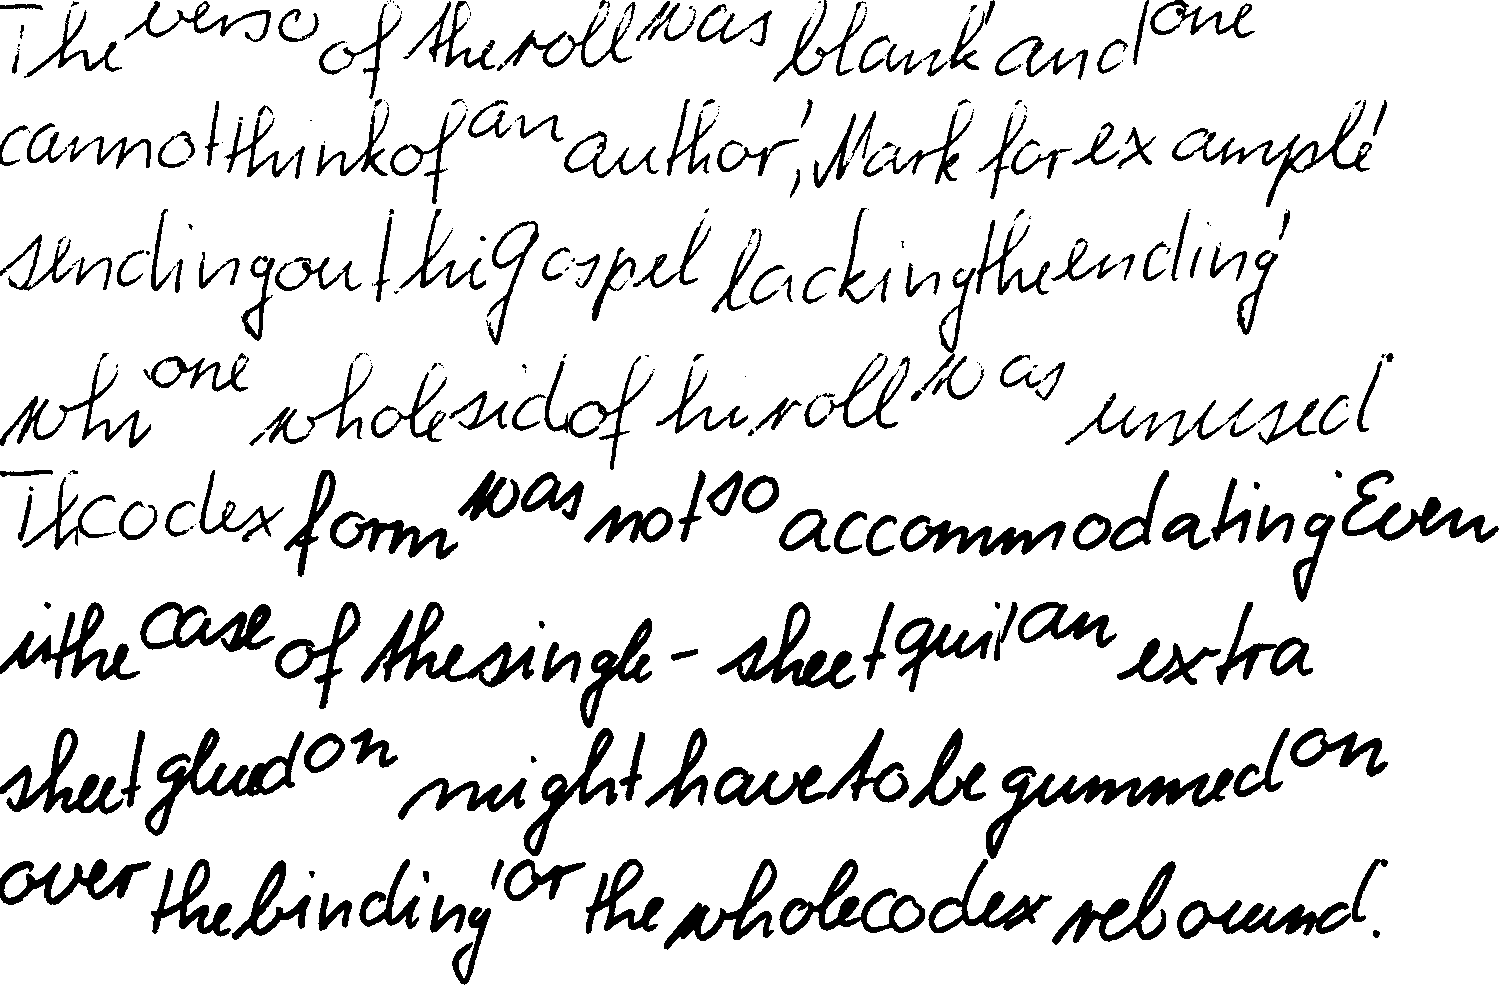 The verso of the roll was blank' and one
cannot think of an author', Mark for example'
sending out his Gospel lacking the ending'
when one whole side of his roll was unused
The codex form was not so accommodating Even
in the case of the single - sheet quire' an extra
sheet glued on might have to be gummed on
over the binding' or the whole codex rebound.